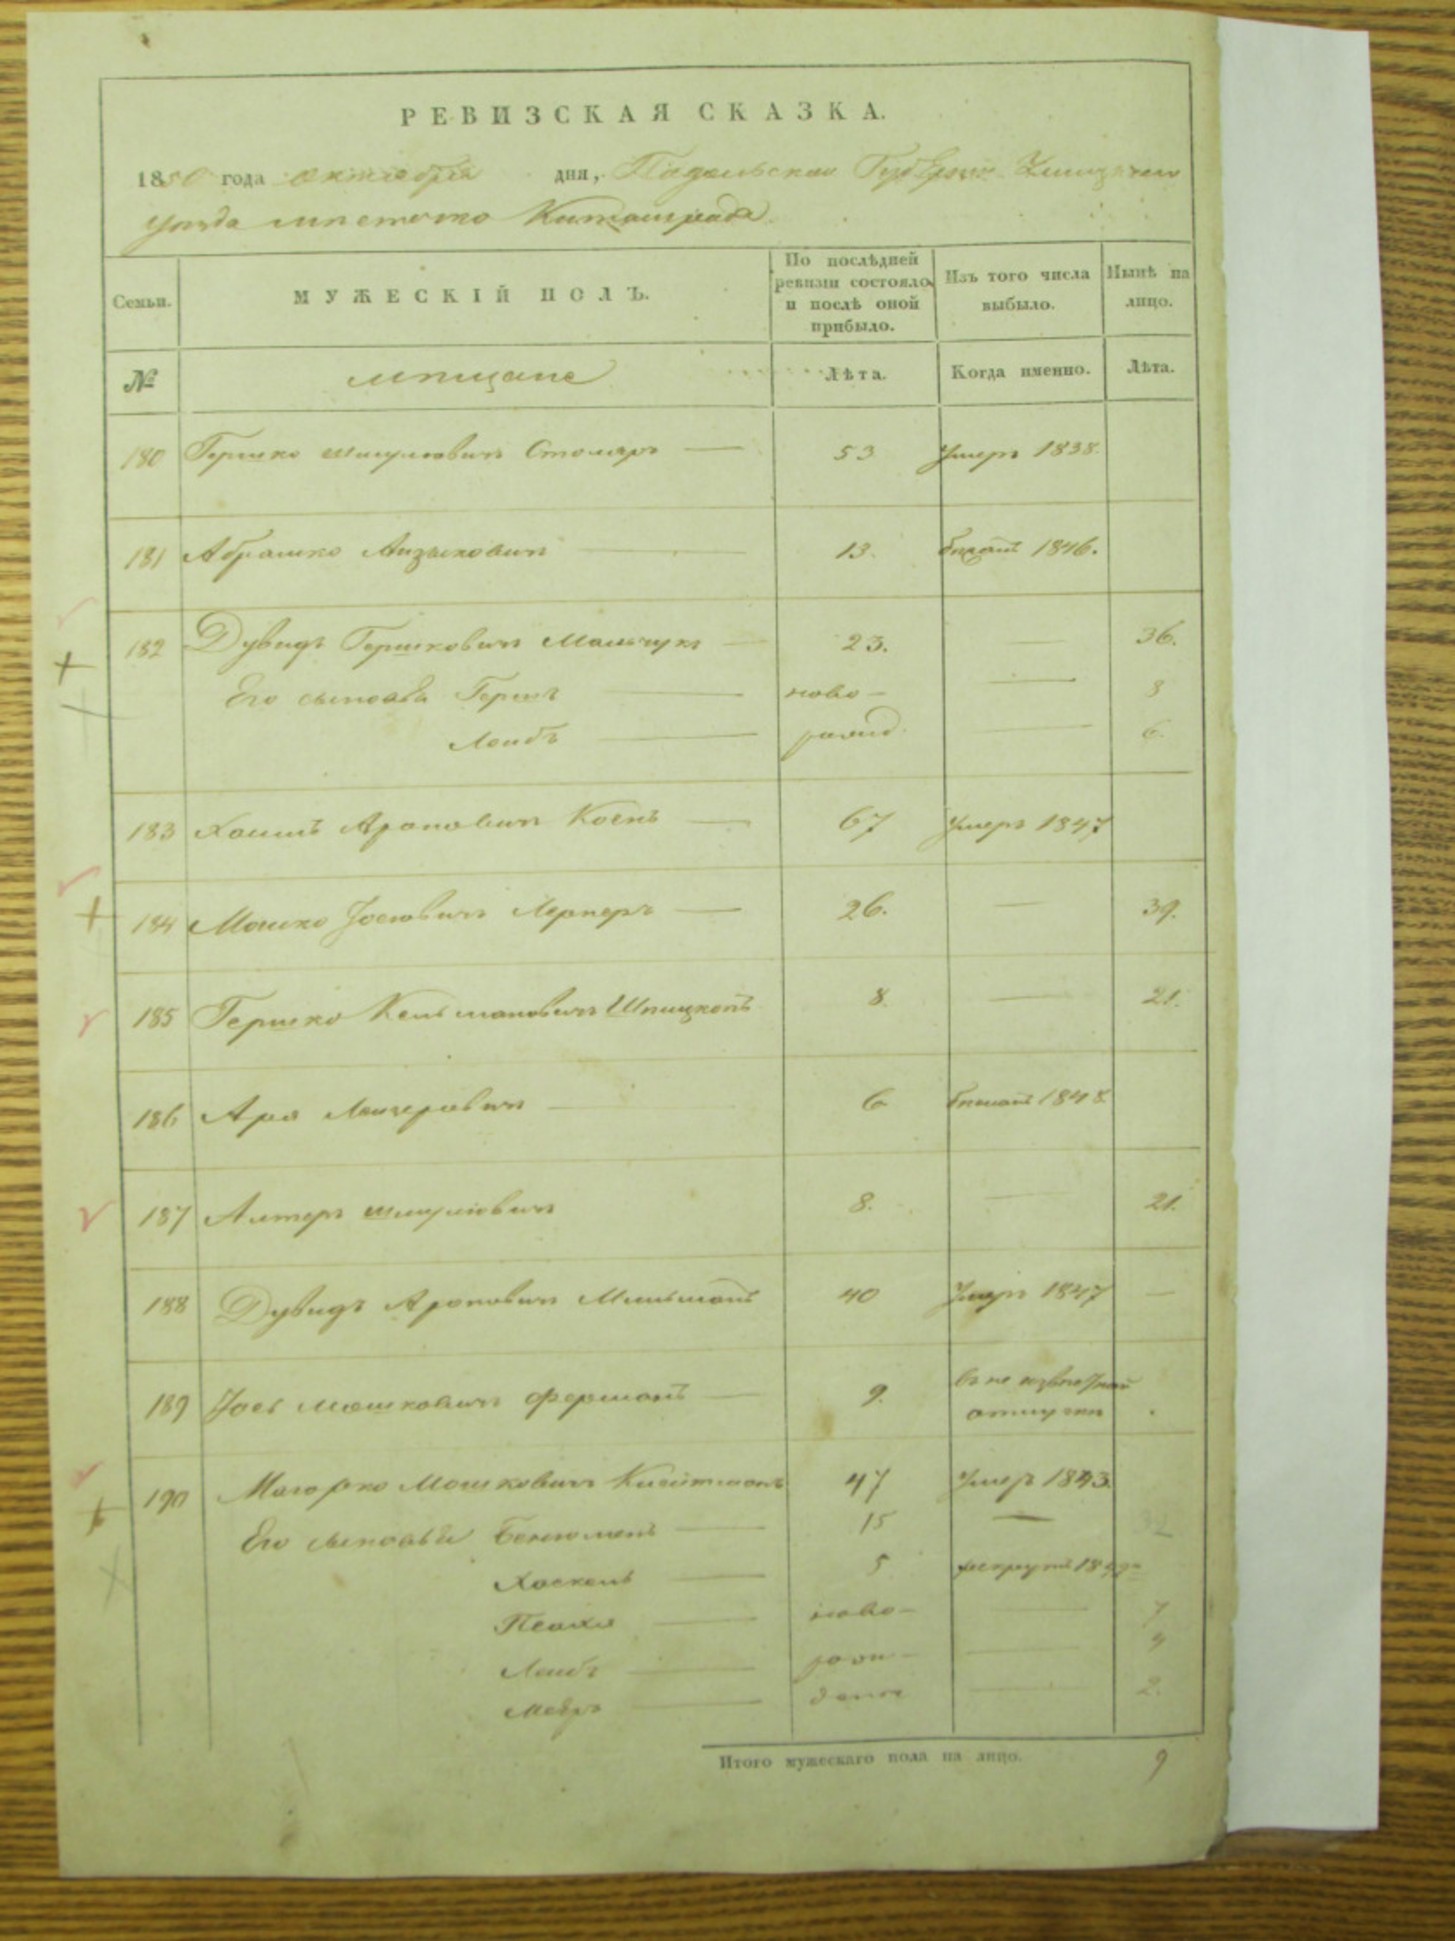 РЕВИЗСКАЯ СКАЗКА.
1850 года октября дня, Подольской Губернии Ушицкого
уезда местечка Китайгорода
Семьи. МУЖЕСКІЙ ПОЛЪ. По послѣдней ревизіи состояло и послѣ оной прибыло. Изъ того числа выбыло. Нынѣ на лицо.
№ мещане Лѣта. Когда именно. Лѣта.
180 Гершко Шмулiовичъ Столяръ 53 умеръ 1838.
181 Абрамко Айзыковичъ 13. 1846.
182 Дувидъ Гершковичъ Мальчукъ 23. 36.
Его сыновья Гершъ ново- 8
Лейбъ рожд. 6.
183 Хаимъ Ароновичъ Коенъ 67 умеръ 1847
184 Мошко Іосiовичъ Лернеръ 26. 39.
185 Гершко Кельмановичъ Шпицкопъ 8. 21.
186 Арія Лейзеровичъ 6 1848.
187 Алтеръ Шмулiовичъ 8. 21.
188 Дувидъ Ароновичъ Мильманъ 40 умеръ 1847 —
189 Іось Мошковичъ Ферманъ 9. въ не извѣстной
отлучке
190 Мошковичъ 47 умеръ 1843
Его сыновья 15 — 32
Хаскель 5 рекрутъ
Пейся ново- 7
Лейбъ рож- 4
Мееръ дено 2.
Итого мужескаго пола на лицо. 9